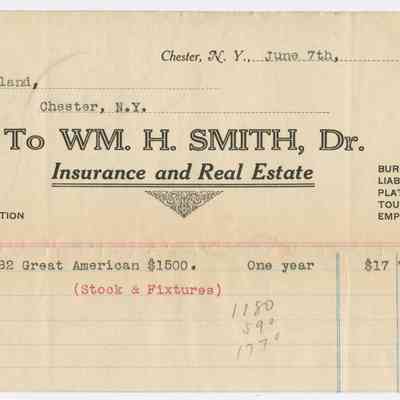 Chester, N. Y., June 7th,
land,
Chester, N.Y.
To WM. H. SMITH, Dr.
Insurance and Real Estate
BUR
LIAB
PLAT
TOU
EMP
TION
32 Great American $1500. One year $17
(Stock & Fixtures)
1180
590
1770